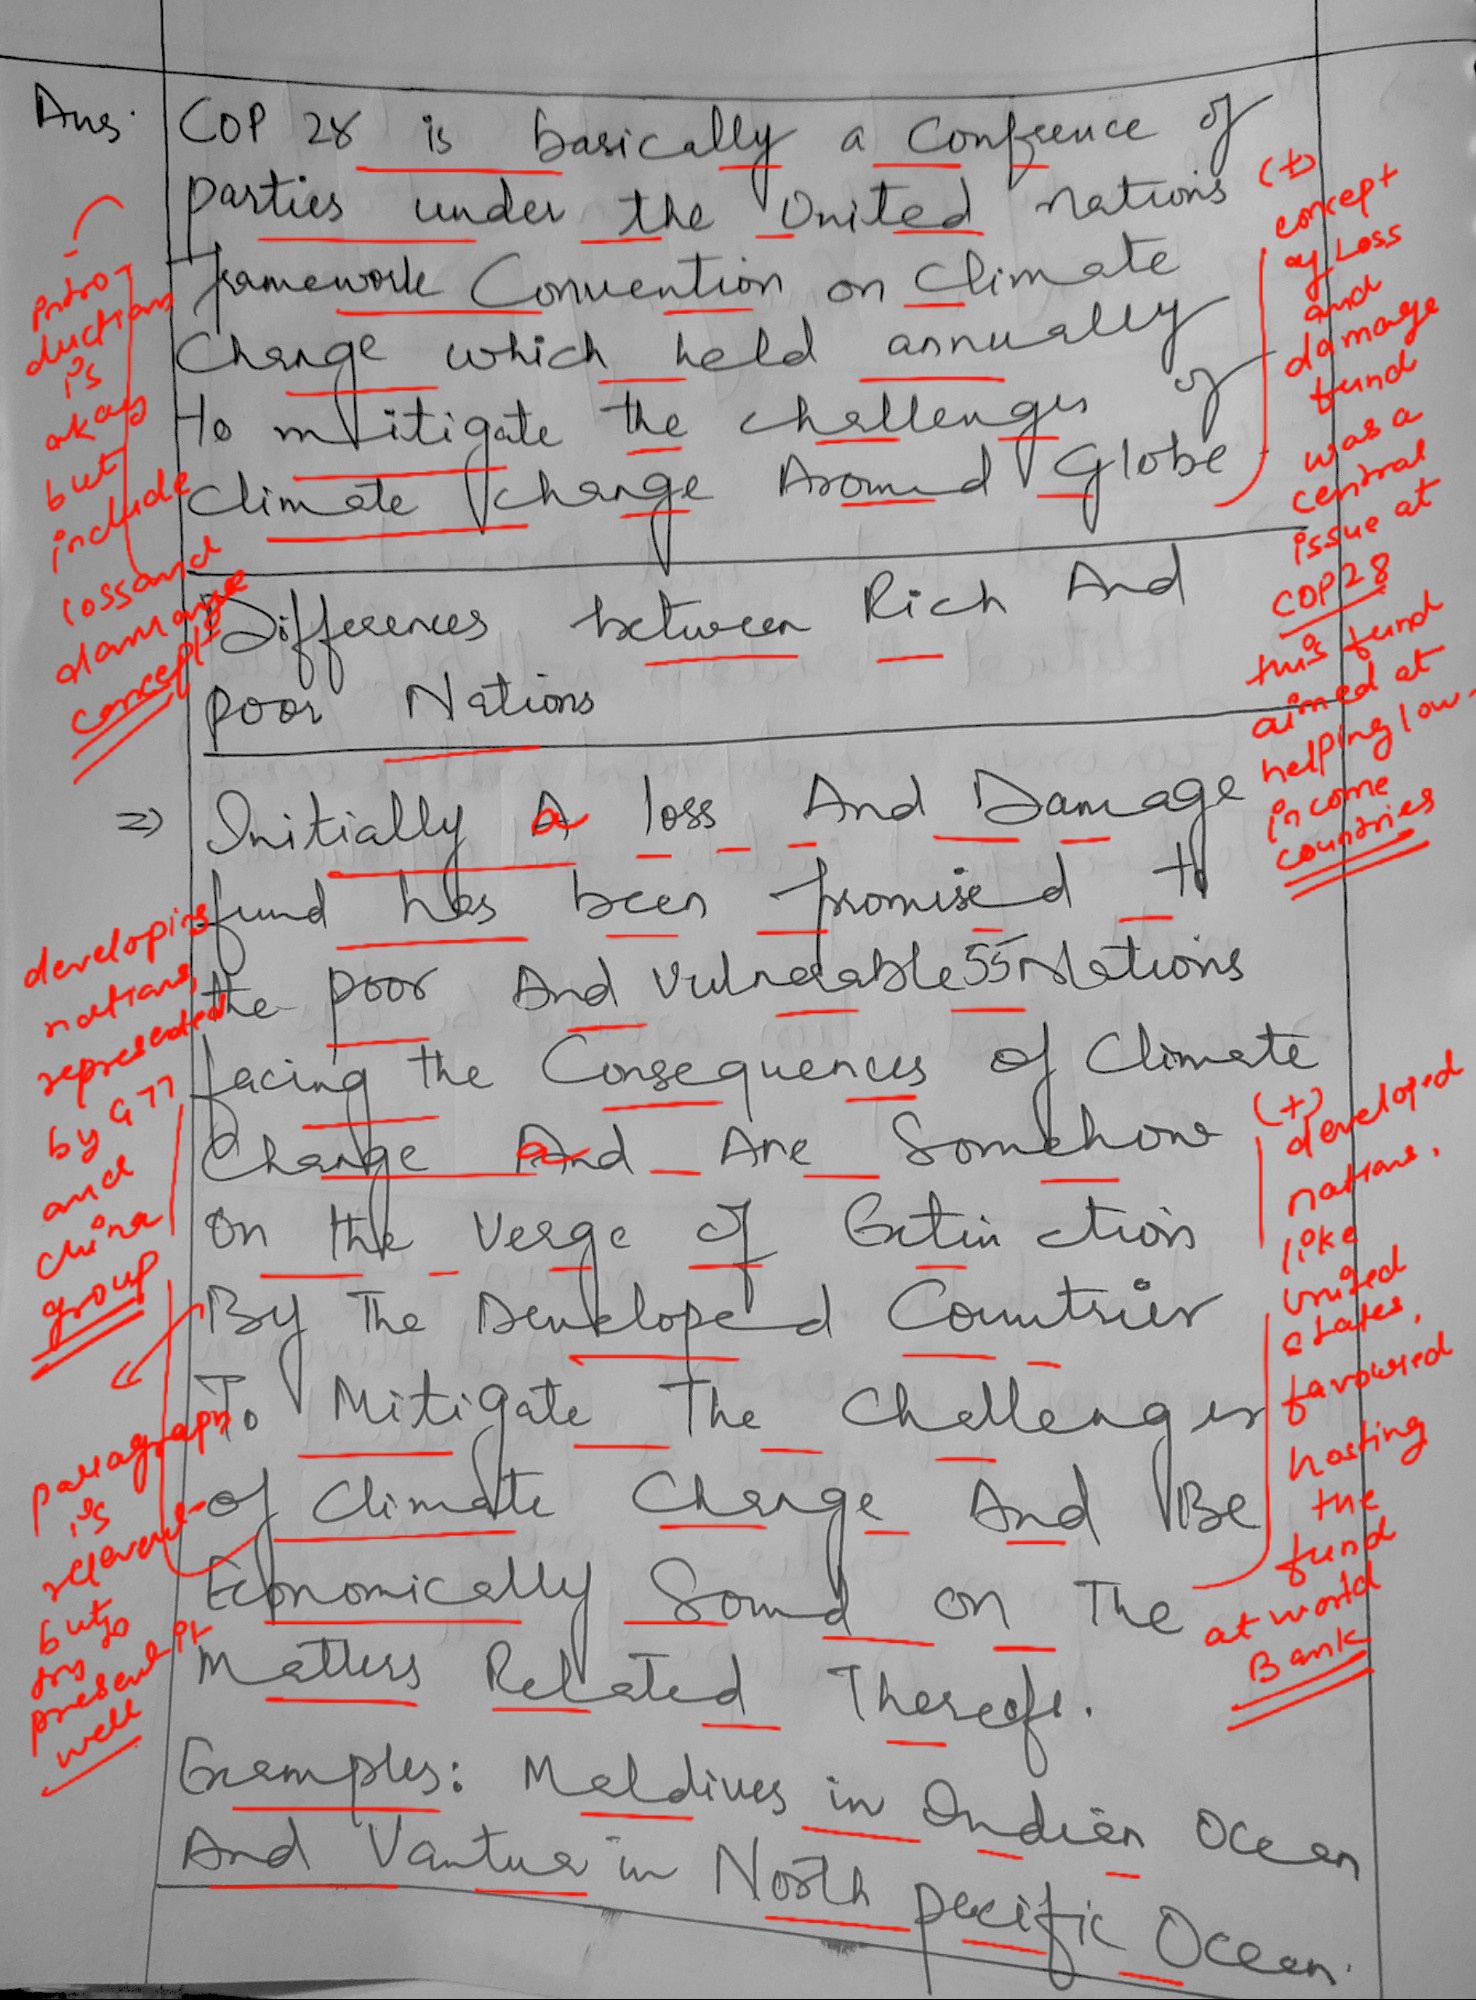 Ans. COP 28 is basically a Confrence of
parties under the United nations
framework Convention on Climate
Change which held annually
to mitigate the challenges of
climate change Around Globe
Differences between Rich And
poor Nations
=> Initially A loss And Damage
fund has been promised to
the poor And vulnerable 55 Nations
facing the Consequences of Climate
Change And Are Somehow
on the verge of Extinction
By The Developed Countries
To Mitigate The Challenges
of Climate Change And Be
Economically Sound on The
Matters Related Thereof.
Examples: Maldives in Indian Ocean
And Vantua in North pecific Ocean.
intro-
ductions
is
okay
but
include
loss and
damange
concept
developing
nations,
represented
by G77
and
china
group
paragraph
is
relevant
but
try to
present it
well
(+)
concept
of Loss
and
damage
fund
was a
central
issue at
COP28
this fund
aimed at
helping low-
income
countries
(+)
developed
nations.
like
united
states.
favoured
hosting
the
fund
at world
Bank